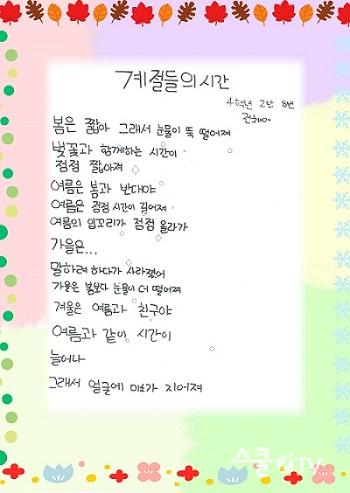 계절들의 시간
4학년 2반 8번
봄은 짧아 그래서 눈물이 뚝 떨어져
벚꽃과 함께하는 시간이
점점 짧아져
여름은 봄과 반대야
여름은 점점 시간이 길어져
여름의 입꼬리가 점점 올라가
가을은...
말하려 하다가 사라졌어
가을은 봄보다 눈물이 더 떨어져
겨울은 여름과 친구야
여름과 같이 시간이
늘어나
그래서 얼굴에 미소가 지어져
스쿨iTV